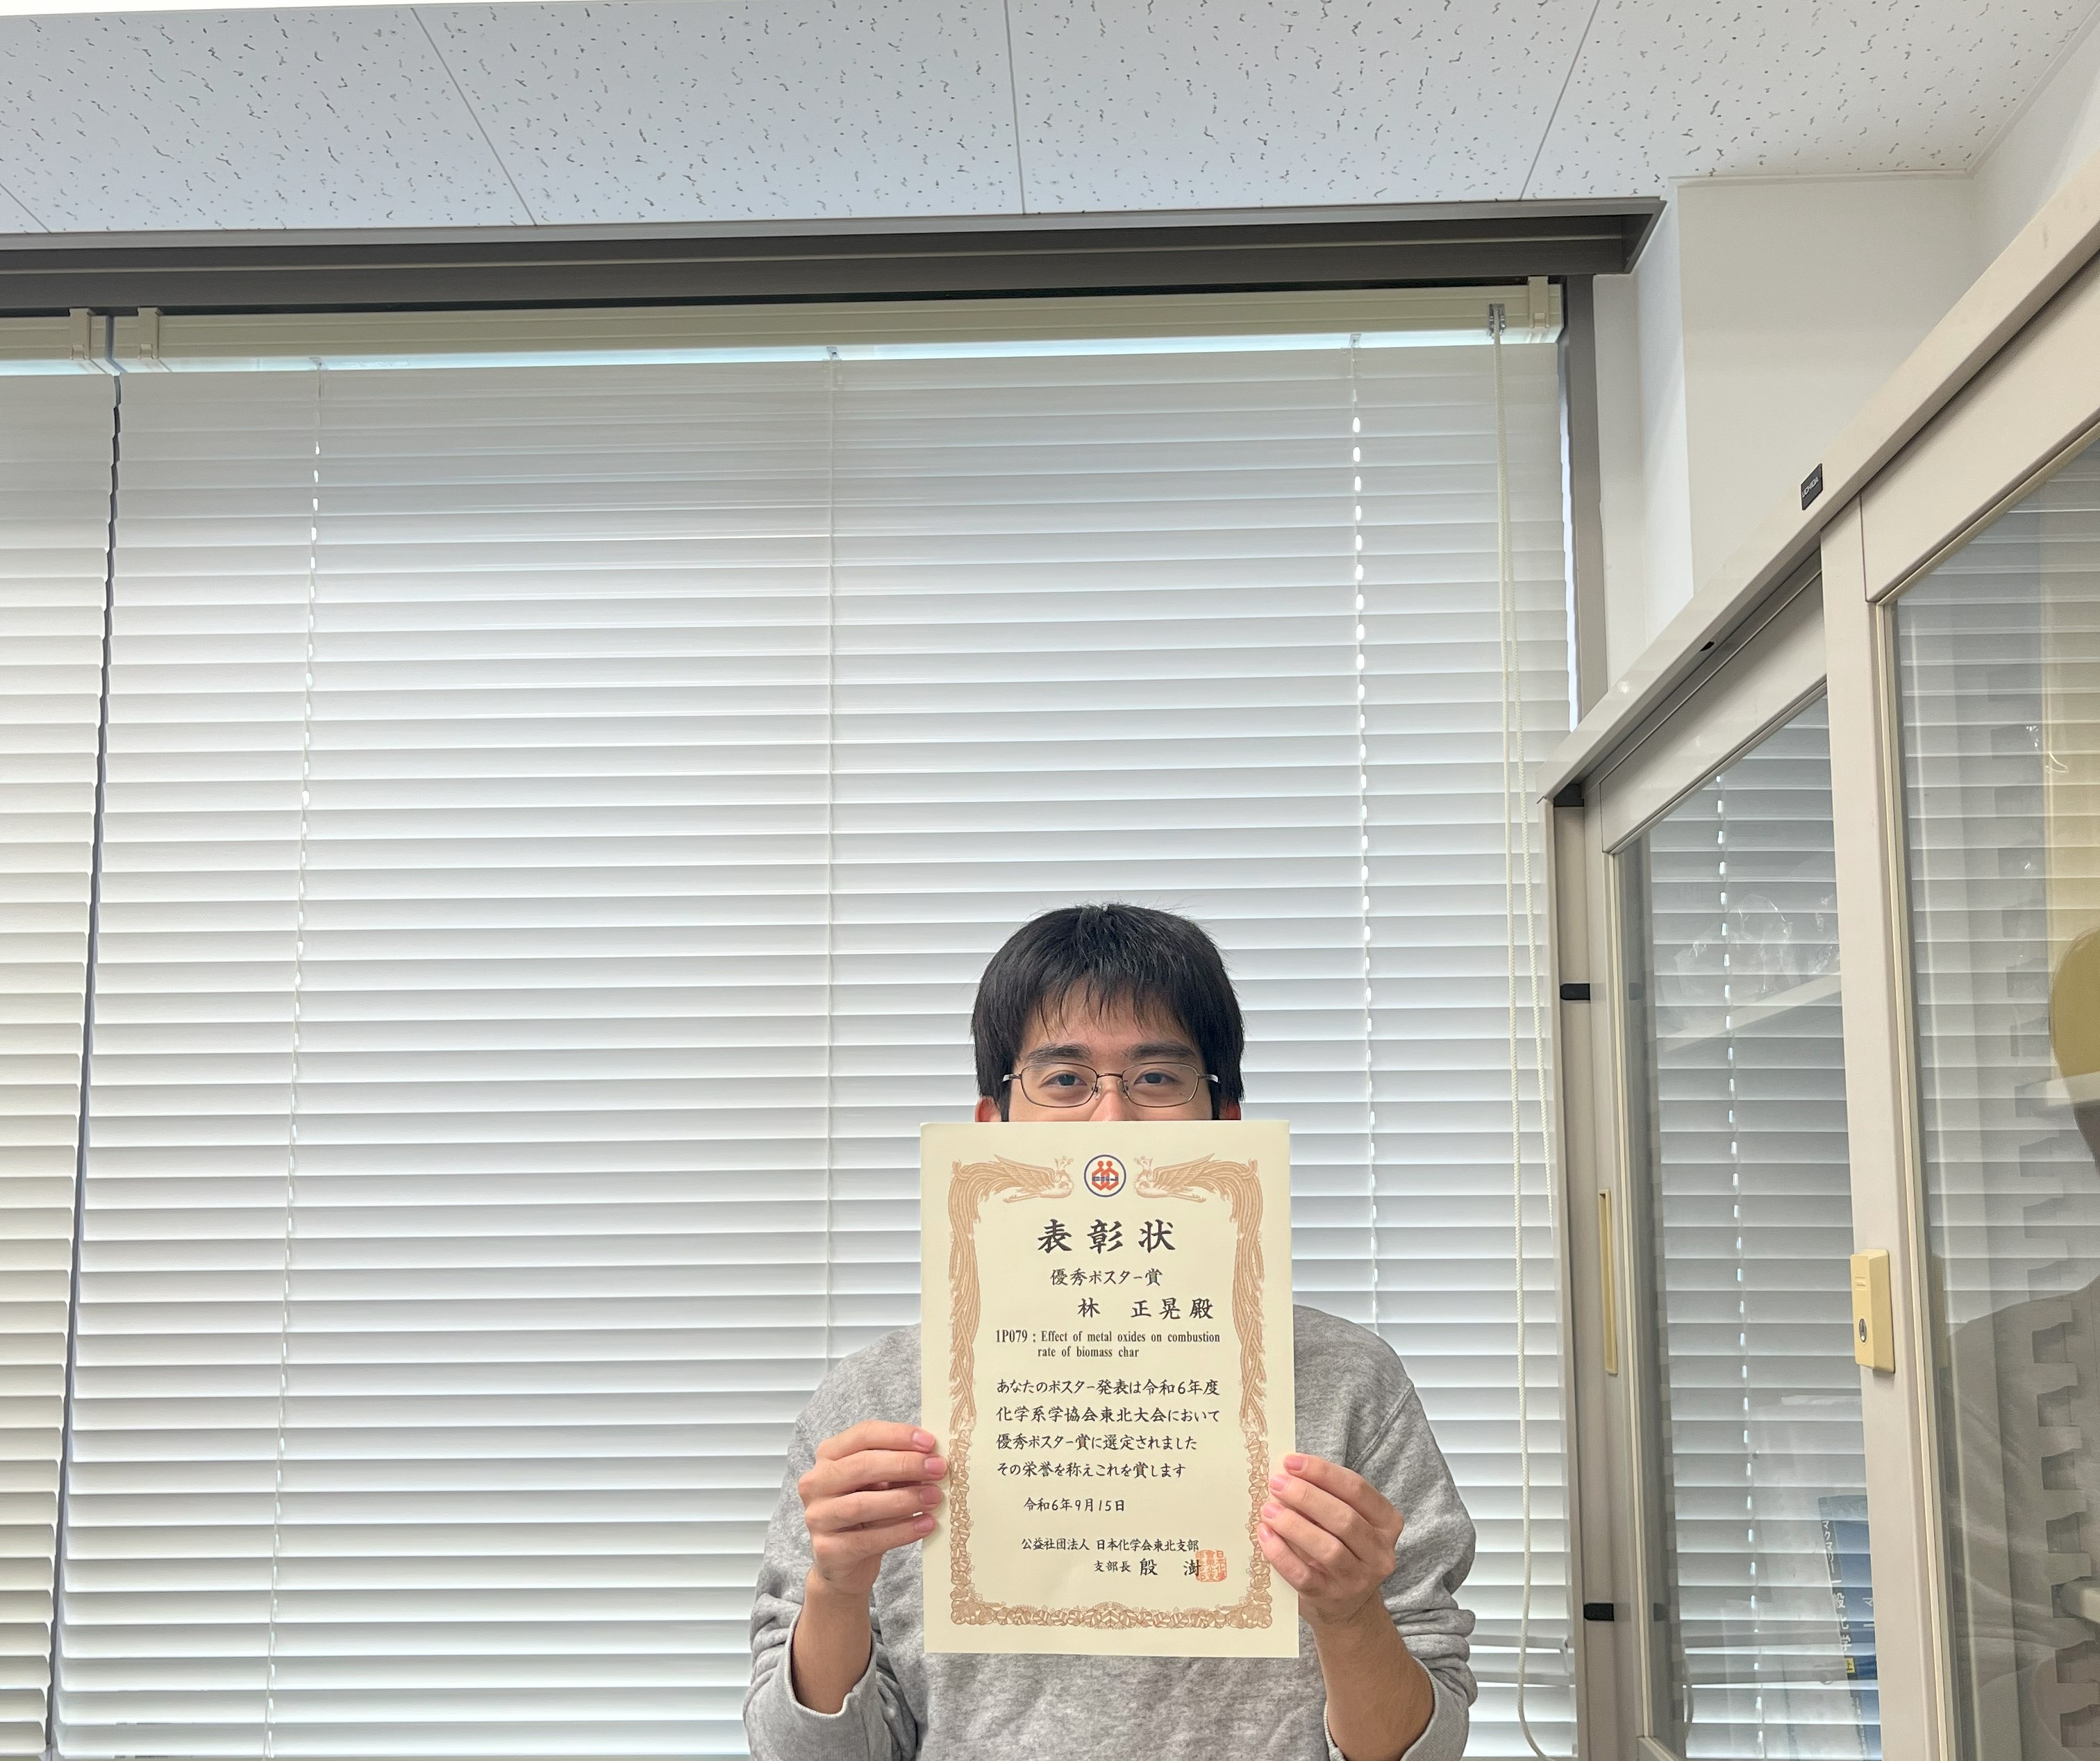 表彰状
優秀ポスター賞
林 正晃 殿
1P079 : Effect of metal oxides on combustion
rate of biomass char
あなたのポスター発表は令和6年度
化学系学協会東北大会において
優秀ポスター賞に選定されました
その栄誉を称えこれを賞します
令和6年9月15日
公益社団法人 日本化学会東北支部
支部長 殷 澍
UCHIDA
マクマリー 一般化学